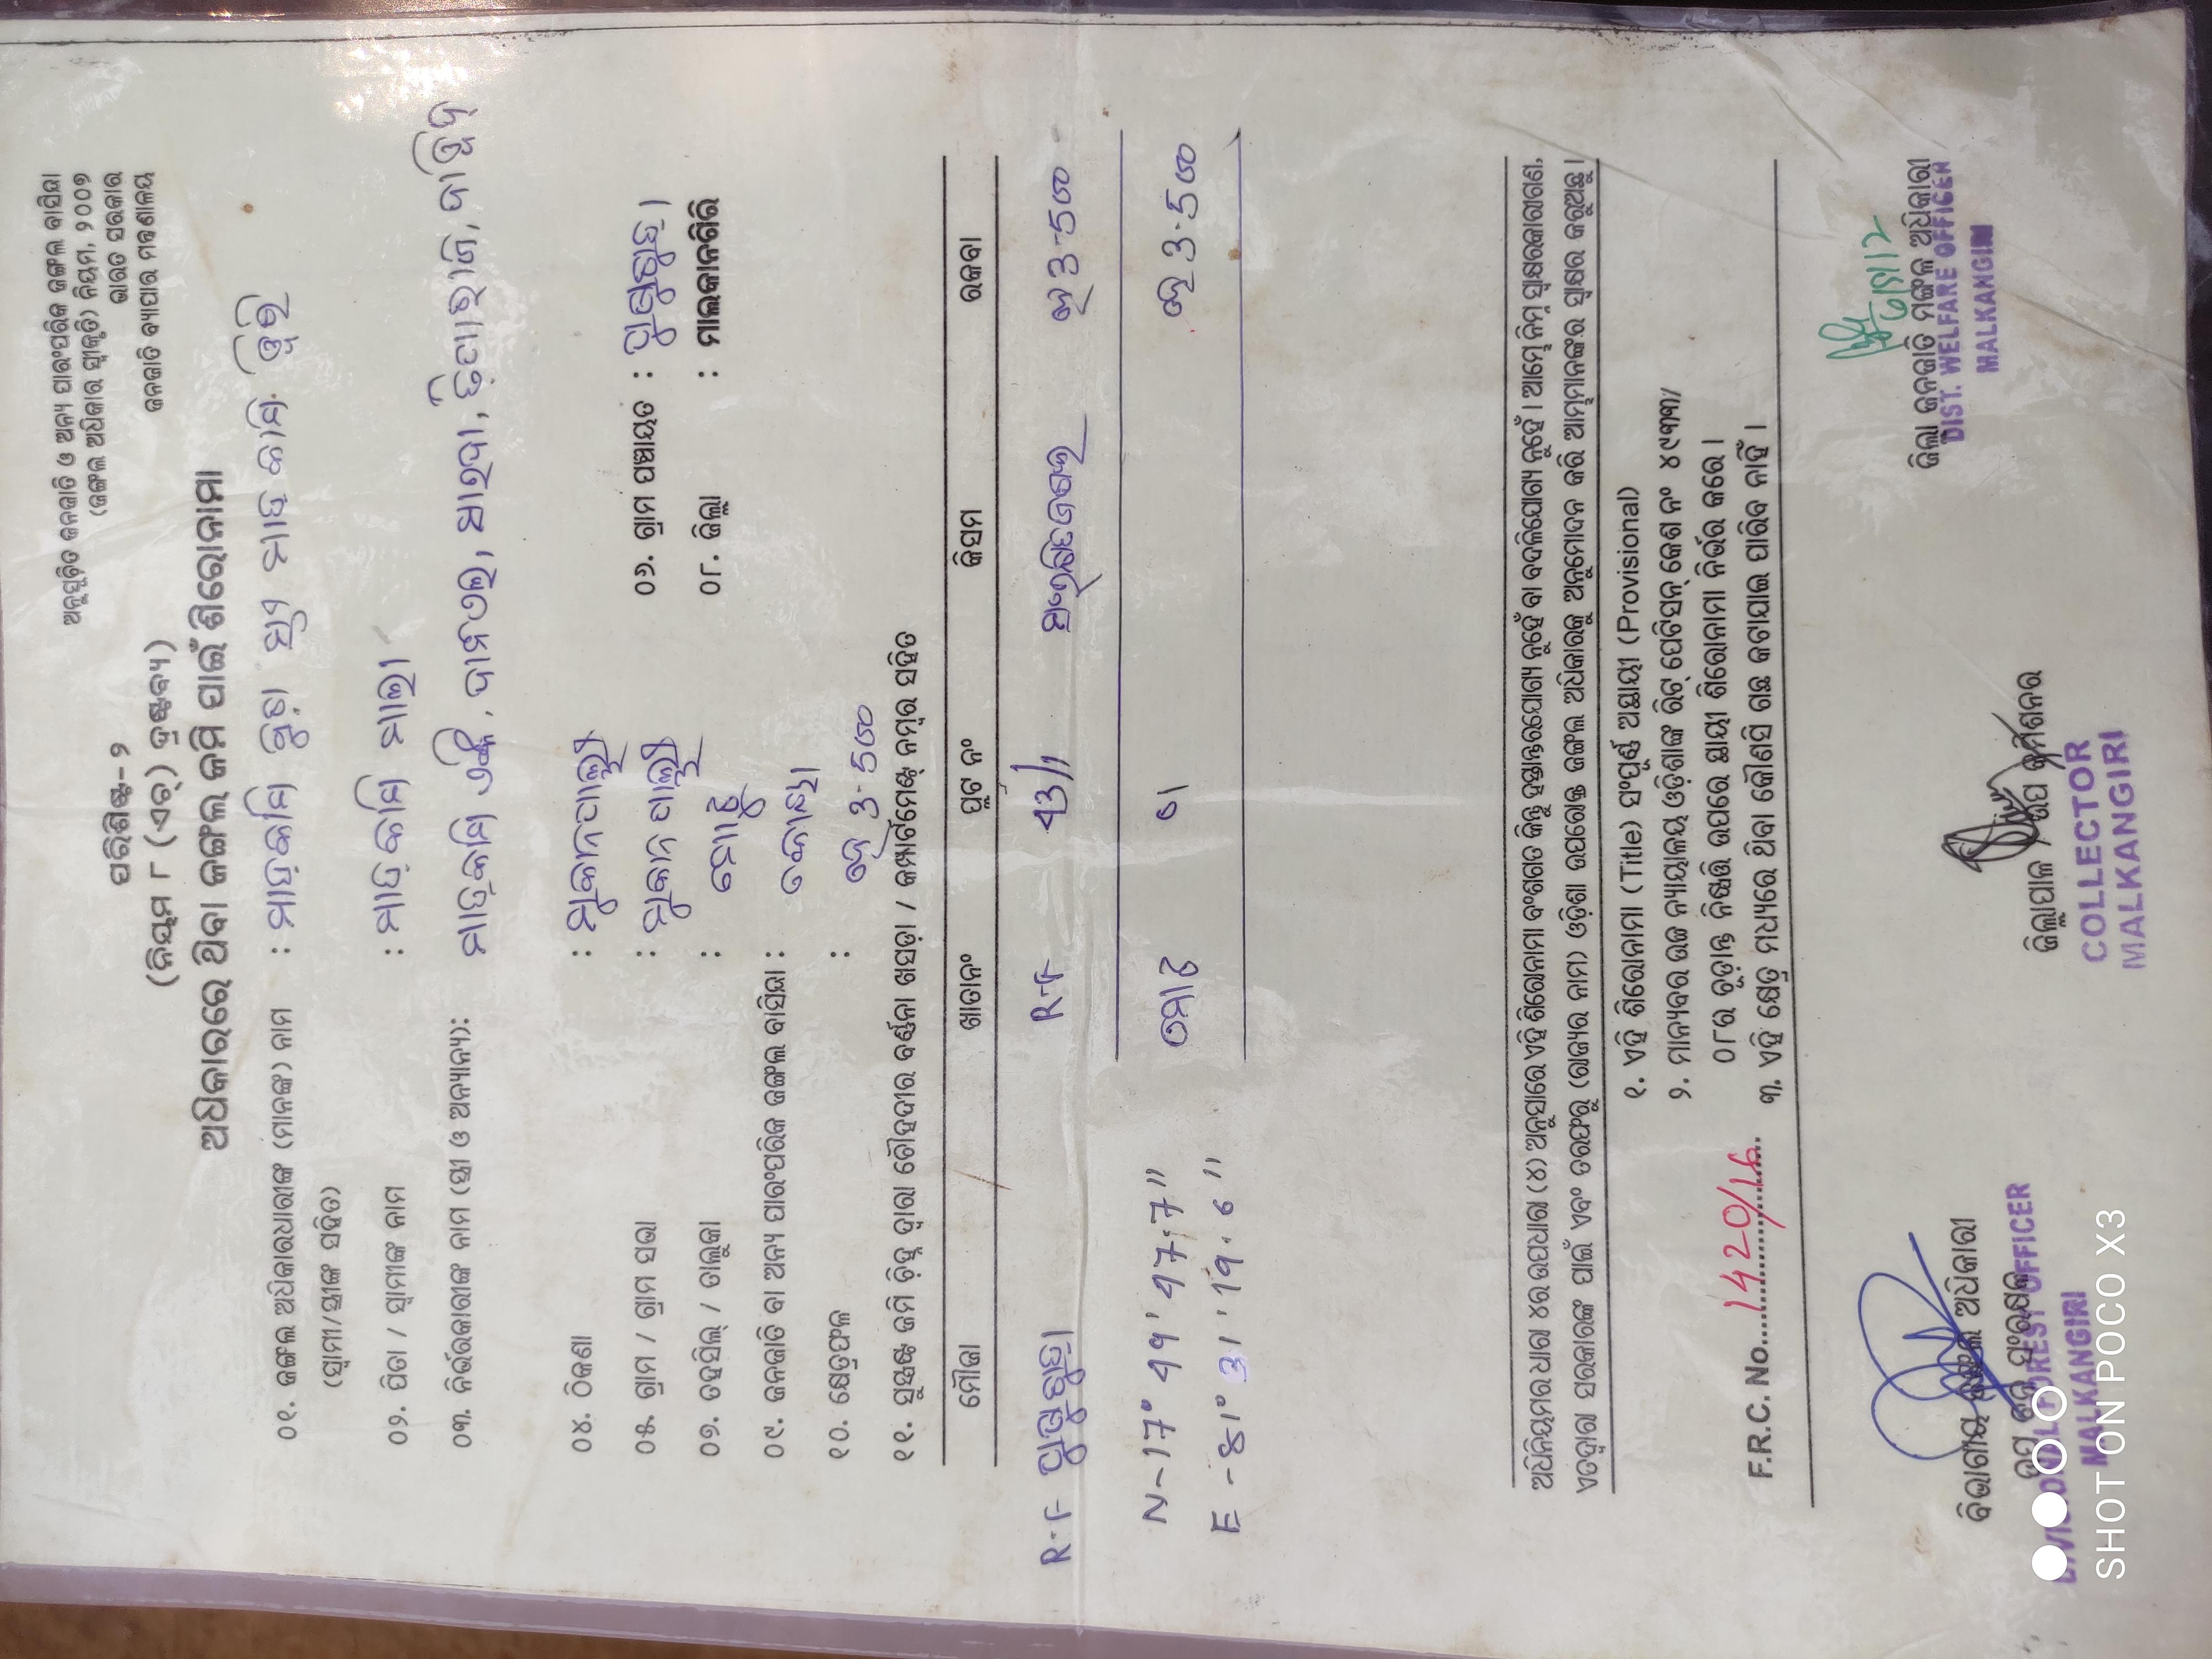 ଅନୁସୂଚିତ ଜନଜାତି ଓ ଅନ୍ୟ ପାରଂପରିକ ଜଙ୍ଗଲ ବାସିନ୍ଦା
(ଜଙ୍ଗଲ ଅଧିକାର ସ୍ୱୀକୃତି) ନିୟମ, ୨୦୦୭
ଭାରତ ସରକାର
ଜନଜାତି ବ୍ୟାପାର ମନ୍ତ୍ରଣାଳୟ
ପରିଶିଷ୍ଟ- ୨
(ନିୟମ ୮ (ଏଚ୍) ଦ୍ରଷ୍ଟବ୍ୟ)
ଅଧିକାରରେ ଥିବା ଜଙ୍ଗଲ ଜମି ପାଇଁ ଶିରୋନାମା
୦୧. ଜଙ୍ଗଲ ଅଧିକାରଧାରୀଙ୍କ (ମାନଙ୍କ) ନାମ : ମାଡ଼କାମି
(ସ୍ୱାମୀ/ସ୍ତ୍ରୀଙ୍କ ସହିତ)
୦୨. ପିତା / ସ୍ୱାମୀଙ୍କ ନାମ : ମାଡ଼କାମି ମାଲା
୦୩. ନିର୍ଭରକାରୀଙ୍କ ନାମ (ସ୍ତ୍ରୀ ଓ ଅନ୍ୟାନ୍ୟ): ମାଡ଼କାମି
୦୪. ଠିକଣା :
୦୫. ଗ୍ରାମ / ଗ୍ରାମ ସଭା : ୦୬. ଗ୍ରାମ ପଞ୍ଚାୟତ :
୦୭. ତହସିଲ୍ / ତାଲୁକା : ୦୮. ଜିଲ୍ଲା : ମାଲକାନଗିରି
୦୯. ଜନଜାତି ବା ଅନ୍ୟ ପାରଂପରିକ ଜଙ୍ଗଲ ବାସିନ୍ଦା : କୋୟା
୧୦. କ୍ଷେତ୍ରଫଳ : 3-500
୧୧. ସୁସ୍ପଷ୍ଟ ଜମି ଚିହ୍ନ ଦ୍ୱାରା ଚୌହଦ୍ଦୀର ବର୍ଣ୍ଣନା ଖସଡ଼ା / କମ୍ପାର୍ଟମେଣ୍ଟ ନମ୍ବର ସହିତ
ମୌଜା ଖାତାନଂ ପ୍ଲଟ ନଂ କିସମ ରକବା
R-F R-F 43/1 3-500
N-17° 49' 47.7"
ମୋଟ 3-500
E-81° 31' 19.6"
ଅଧିନିୟମର ଧାରା ୪ର ଉପଧାରା (୪) ଅନୁସାରେ ଏହି ଶିରୋନାମା ବଂଶଗତ କିନ୍ତୁ ହସ୍ତାନ୍ତରଯୋଗ୍ୟ ନୁହେଁ ବା ବଦଳିଯୋଗ୍ୟ ନୁହେଁ । ଆମ୍ଭେ ନିମ୍ନ ସ୍ୱାକ୍ଷରକାରୀଗଣ,
ଏତଦ୍ଦ୍ୱାରା ସରକାରଙ୍କ ପାଇଁ ଏବଂ ତରଫରୁ (ରାଜ୍ୟର ନାମ) ଓଡ଼ିଶା ଉପରୋକ୍ତ ଜଙ୍ଗଲ ଅଧିକାରକୁ ଅନୁମୋଦନ କରି ଆମ୍ଭମାନଙ୍କର ସ୍ୱାକ୍ଷର କରୁଅଛୁ ।
୧. ଏହି ଶିରୋନାମା (Title) ସଂପୂର୍ଣ୍ଣ ଅସ୍ଥାୟୀ (Provisional)
୨. ମାନ୍ୟବର ଉଚ୍ଚ ନ୍ୟାୟାଳୟ ଓଡ଼ିଶାଙ୍କ ରିଟ୍ ପେଟିସନ୍ କେଶ ନଂ ୪୯୩୩/
୦୮ର ଚୂଡ଼ାନ୍ତ ନିଷ୍ପତ୍ତି ଉପରେ ସ୍ଥାୟୀ ଶିରୋନାମା ନିର୍ଭର କରେ ।
F.R.C. No. 1420/16 ୩. ଏହି କ୍ଷେତ୍ର ମଧ୍ୟରେ ଥିବା କୌଣସି ଗଛ କଟାଯାଇ ପାରିବ ନାହିଁ ।
ବିଭାଗୀୟ ଜଙ୍ଗଲ ଅଧିକାରୀ
ଉପ ବନ ସଂରକ୍ଷକ
DIVISIONAL FOREST OFFICER
MALKANGIRI
ଜିଲ୍ଲାପାଳ / ଉପ କମିଶନର
COLLECTOR
MALKANGIRI
ଜିଲ୍ଲା ଜନଜାତି ମଙ୍ଗଳ ଅଧିକାରୀ
DIST. WELFARE OFFICER
MALKANGIRI
SHOT ON POCO X3